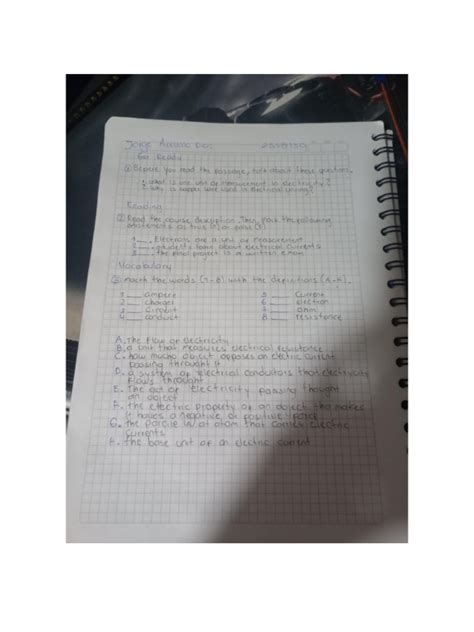 Jorge
Get Ready
① Before you read the passage, talk about these questions.
1. what is one unit of measurement in electricity?
2. Why is copper wire used in electrical wiring?
Reading
② Read the course description. Then, mark the following
statements as true (T) or false (F).
1 __. Electrons are a unit of measurement
2 __. students learn about electrical currents
3 __. the final project is a written exam
Vocabulary
③ Match the words (1-8) with the definitions (A-H).
1 __ ampere 5 __ current
2 __ charge 6 __ electron
3 __ circuit 7 __ ohm
4 __ conduct 8 __ resistance
A. the flow of electricity
B. a unit that measures electrical resistance
C. how mucho object opposes an electric current
passing throught it
D. a system of electrical conductors that electricity
flows throught
E. The act of electricity passing thought
an object
F. the electric property of an object tha makes
it haves a negative, or positive force
G. the of atom that carries electric
currents
H. the base unit of an electric current